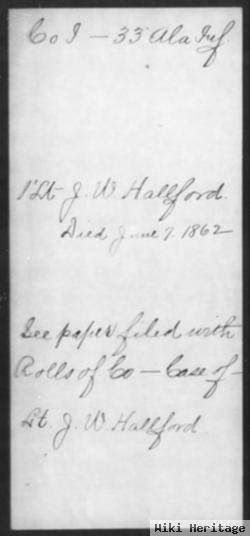 Co I — 33 Ala Inf
1 Lt J. W. Hallford.
Died June 7. 1862
See paper filed with
Rolls of Co — Case of —
Lt. J. W. Hallford.
Wiki Heritage